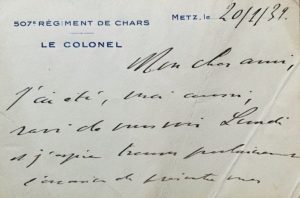 507e RÉGIMENT DE CHARS
METZ, le 20/1/39.
LE COLONEL
Mon cher ami,
J'ai été, moi aussi,
ravi de vous voir Lundi
et j'espère trouver prochainement
l'occasion de